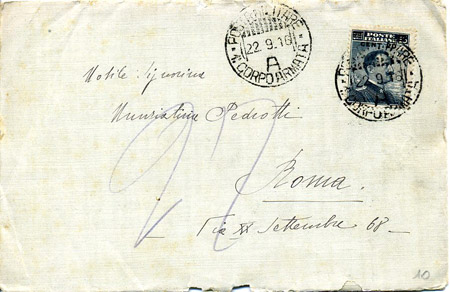 POSTA MILITARE
22.9.16
A
4. CORPO ARMATA
POSTE ITALIANE
POSTA MILITARE
.9.16
A
CORPO ARMATA
Nobile Signorina
Nunziatina Pedrotti
Roma.
Via XX Settembre 68 -
10